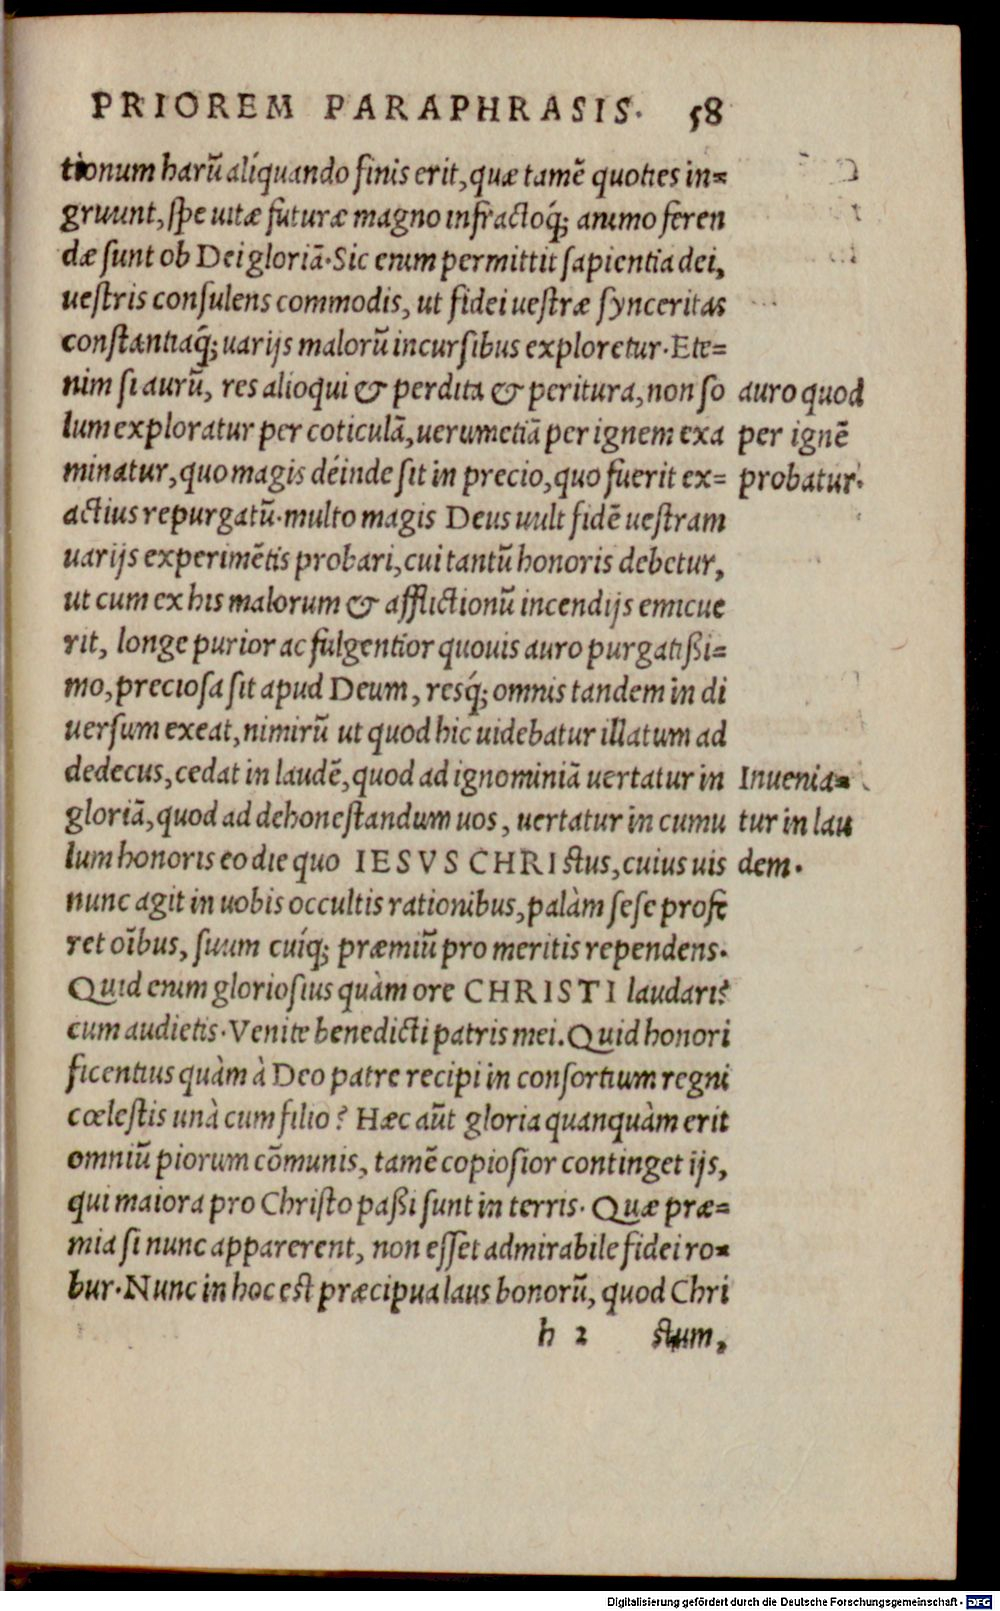 PRIOREM PARAPHRASIS. 58
tionum harũ alíquando finis erit, quæ tamẽ quoties in=
gruunt, spe uitæ futuræ magno infractoq́; animo feren
dæ sunt ob Dei gloriã. Sic enim permittit sapientia dei,
uestris consulens commodis, ut fidei uestræ synceritas
constantiaq́; uarijs malorũ incursibus exploretur. Ete=
nim si aurũ, res alioqui & perdita & peritura, non so
lum exploratur per coticulã, uerumetiã per ignem exa
minatur, quo magis déinde sit in precio, quo fuerit ex=
actius repurgatũ. multo magis Deus uult fidẽ uestram
uarijs experimẽtis probari, cui tantũ honoris debetur,
ut cum ex his malorum & afflictionũ incendijs emicue
rit, longe purior ac fulgentior quouis auro purgatißi=
mo, preciosa sit apud Deum, resq́; omnis tandem in di
uersum exeat, nimirũ ut quod hic uidebatur illatum ad
dedecus, cedat in laudẽ, quod ad ignominiã uertatur in
gloriã, quod ad dehonestandum uos, uertatur in cumu
lum honoris eo die quo IESVS CHRIstus, cuius uis
nunc agit in uobis occultis rationibus, palàm sese profe
ret oĩbus, suum cuíq; præmiũ pro meritis rependens.
Quid enim gloriosius quàm ore CHRISTI laudari?
cum audietis. Venite benedicti patris mei. Quid honori
ficentius quàm à Deo patre recipi in consortium regni
cœlestis unà cum filio? Hæc aũt gloria quanquàm erit
omniũ piorum cõmunis, tamẽ copiosior continget ijs,
qui maiora pro Christo paßi sunt in terris. Quæ præ=
mia si nunc apparerent, non esset admirabile fidei ro=
bur. Nunc in hoc est præcipua laus bonorũ, quod Chri
h 2 stum,
auro quod
per ignẽ
probatur.
Inuenia=
tur in lau
dem.
Digitalisierung gefördert durch die Deutsche Forschungsgemeinschaft - DFG